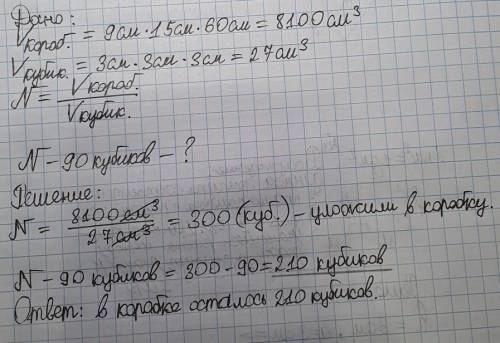 Дано:
Vкороб. = 9см · 15см · 60см = 8100см³
Vкубик. = 3см · 3см · 3см = 27см³
N = Vкороб. / Vкубик.
N - 90 кубиков - ?
Решение:
N = 8100см³ / 27см³ = 300 (куб.) - уложили в коробку.
N - 90 кубиков = 300 - 90 = 210 кубиков
Ответ: в коробке осталось 210 кубиков.